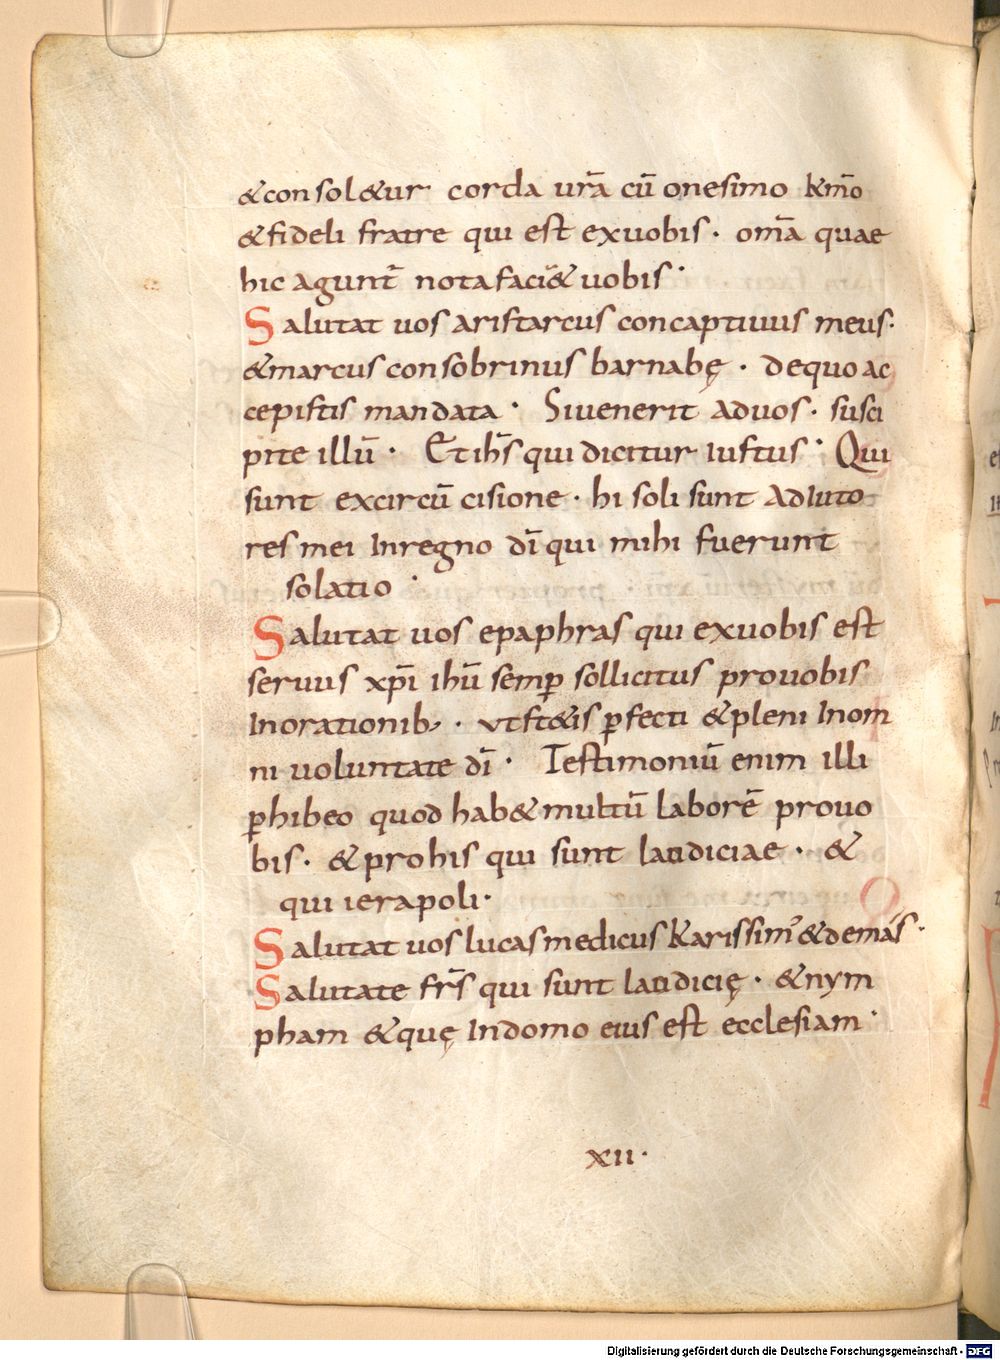 &consol&ur corda urā cū onesimo kmō
&fideli fratre qui est exuobis · om̄a quae
hic agunt̄ nota faci&uobis ·
Salutat uos aristarcus concaptiuus meus ·
&marcus consobrinus barnabę · dequo ac
cepistis mandata · Siuenerit aduos · susci
pite illū · Et ih̄s qui dicitur iustus · Qui
sunt excircū cisione · hi soli sunt Adiuto
res mei Inregno dī qui mihi fuerunt
solatio ·
Salutat uos epaphras qui exuobis est
seruus xp̄i ihū semp̄ sollicitus prouobis
Inorationib; · utst&is ꝑfecti &pleni Inom
ni uoluntate dī · Testimoniū enim illi
ꝑhibeo quod hab&multū laborē prouo
bis · &prohis qui sunt laodiciae · &
qui ierapoli ·
Salutat uos lucas medicus karissim᾽ &demas ·
Salutate fr̄s qui sunt laodicię · &nym
pham &quę Indomo eius est ecclesiam ·
xii ·
Digitalisierung gefördert durch die Deutsche Forschungsgemeinschaft - DFG